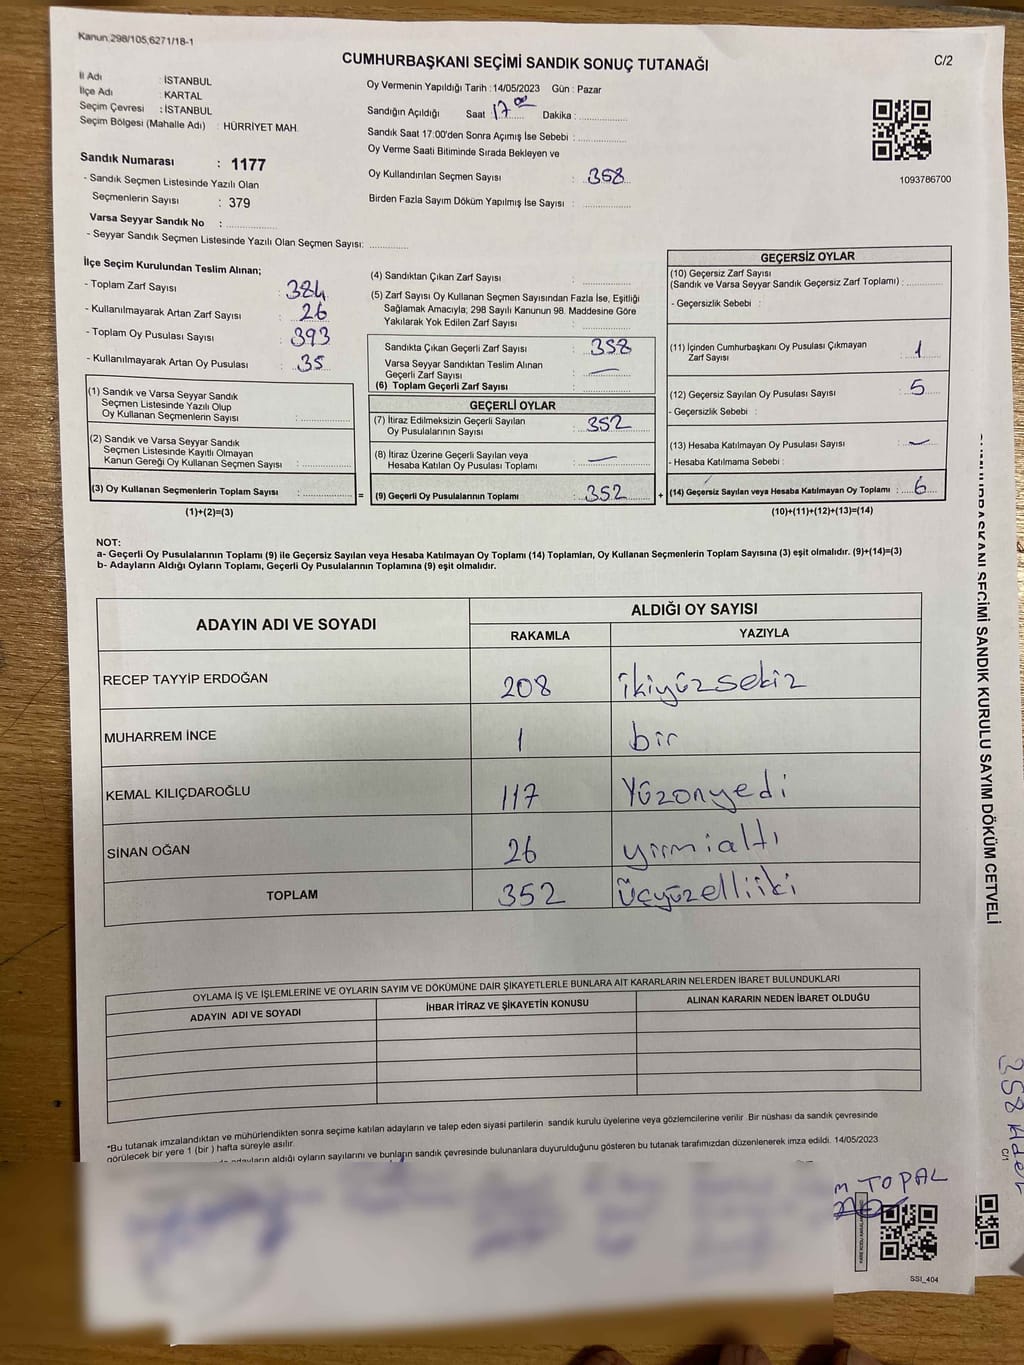 Kanun:298/105,6271/18-1
CUMHURBAŞKANI SEÇİMİ SANDIK SONUÇ TUTANAĞI
C/2
İl Adı : İSTANBUL
İlçe Adı : KARTAL
Seçim Çevresi : İSTANBUL
Seçim Bölgesi (Mahalle Adı) : HÜRRİYET MAH.
Oy Vermenin Yapıldığı Tarih :14/05/2023 Gün : Pazar
Sandığın Açıldığı Saat 17 00 Dakika :
Sandık Saat 17:00'den Sonra Açımış İse Sebebi :
Oy Verme Saati Bitiminde Sırada Bekleyen ve
Oy Kullandırılan Seçmen Sayısı : 358
Birden Fazla Sayım Döküm Yapılmış İse Sayısı :
1093786700
Sandık Numarası : 1177
- Sandık Seçmen Listesinde Yazılı Olan
Seçmenlerin Sayısı : 379
Varsa Seyyar Sandık No :
- Seyyar Sandık Seçmen Listesinde Yazılı Olan Seçmen Sayısı:
İlçe Seçim Kurulundan Teslim Alınan;
- Toplam Zarf Sayısı : 384
- Kullanılmayarak Artan Zarf Sayısı : 26
- Toplam Oy Pusulası Sayısı : 393
- Kullanılmayarak Artan Oy Pusulası : 35
(1) Sandık ve Varsa Seyyar Sandık
Seçmen Listesinde Yazılı Olup
Oy Kullanan Seçmenlerin Sayısı :
(2) Sandık ve Varsa Seyyar Sandık
Seçmen Listesinde Kayıtlı Olmayan
Kanun Gereği Oy Kullanan Seçmen Sayısı :
(3) Oy Kullanan Seçmenlerin Toplam Sayısı :
(1)+(2)=(3)
=
(4) Sandıktan Çıkan Zarf Sayısı :
(5) Zarf Sayısı Oy Kullanan Seçmen Sayısından Fazla İse, Eşitliği
Sağlamak Amacıyla; 298 Sayılı Kanunun 98. Maddesine Göre
Yakılarak Yok Edilen Zarf Sayısı :
Sandıkta Çıkan Geçerli Zarf Sayısı : 358
Varsa Seyyar Sandıktan Teslim Alınan
Geçerli Zarf Sayısı : —
(6) Toplam Geçerli Zarf Sayısı :
GEÇERLİ OYLAR
(7) İtiraz Edilmeksizin Geçerli Sayılan
Oy Pusulalarının Sayısı : 352
(8) İtiraz Üzerine Geçerli Sayılan veya
Hesaba Katılan Oy Pusulası Toplamı : —
(9) Geçerli Oy Pusulalarının Toplamı : 352
+
GEÇERSİZ OYLAR
(10) Geçersiz Zarf Sayısı
(Sandık ve Varsa Seyyar Sandık Geçersiz Zarf Toplamı) :
- Geçersizlik Sebebi :
(11) İçinden Cumhurbaşkanı Oy Pusulası Çıkmayan
Zarf Sayısı : 1
(12) Geçersiz Sayılan Oy Pusulası Sayısı : 5
- Geçersizlik Sebebi :
(13) Hesaba Katılmayan Oy Pusulası Sayısı : —
- Hesaba Katılmama Sebebi :
(14) Geçersiz Sayılan veya Hesaba Katılmayan Oy Toplamı : 6
(10)+(11)+(12)+(13)=(14)
NOT:
a- Geçerli Oy Pusulalarının Toplamı (9) ile Geçersiz Sayılan veya Hesaba Katılmayan Oy Toplamı (14) Toplamları, Oy Kullanan Seçmenlerin Toplam Sayısına (3) eşit olmalıdır. (9)+(14)=(3)
b- Adayların Aldığı Oyların Toplamı, Geçerli Oy Pusulalarının Toplamına (9) eşit olmalıdır.
ADAYIN ADI VE SOYADI
ALDIĞI OY SAYISI
RAKAMLA YAZIYLA
RECEP TAYYİP ERDOĞAN 208 ikiyüzsekiz
MUHARREM İNCE 1 bir
KEMAL KILIÇDAROĞLU 117 Yüzonyedi
SİNAN OĞAN 26 yirmialtı
TOPLAM 352 Üçyüzelliiki
OYLAMA İŞ VE İŞLEMLERİNE VE OYLARIN SAYIM VE DÖKÜMÜNE DAİR ŞİKAYETLERLE BUNLARA AİT KARARLARIN NELERDEN İBARET BULUNDUKLARI
ADAYIN ADI VE SOYADI İHBAR İTİRAZ VE ŞİKAYETİN KONUSU ALINAN KARARIN NEDEN İBARET OLDUĞU
*Bu tutanak imzalandıktan ve mühürlendikten sonra seçime katılan adayların ve talep eden siyasi partilerin sandık kurulu üyelerine veya gözlemcilerine verilir. Bir nüshası da sandık çevresinde
görülecek bir yere 1 (bir ) hafta süreyle asılır.
aldığı oyların sayılarını ve bunların sandık çevresinde bulunanlara duyurulduğunu gösteren bu tutanak tarafımızdan düzenlenerek imza edildi. 14/05/2023
m TOPAL
SSI_404
SEÇİMİ SANDIK KURULU SAYIM DÖKÜM CETVELİ
358 Adet
C/1